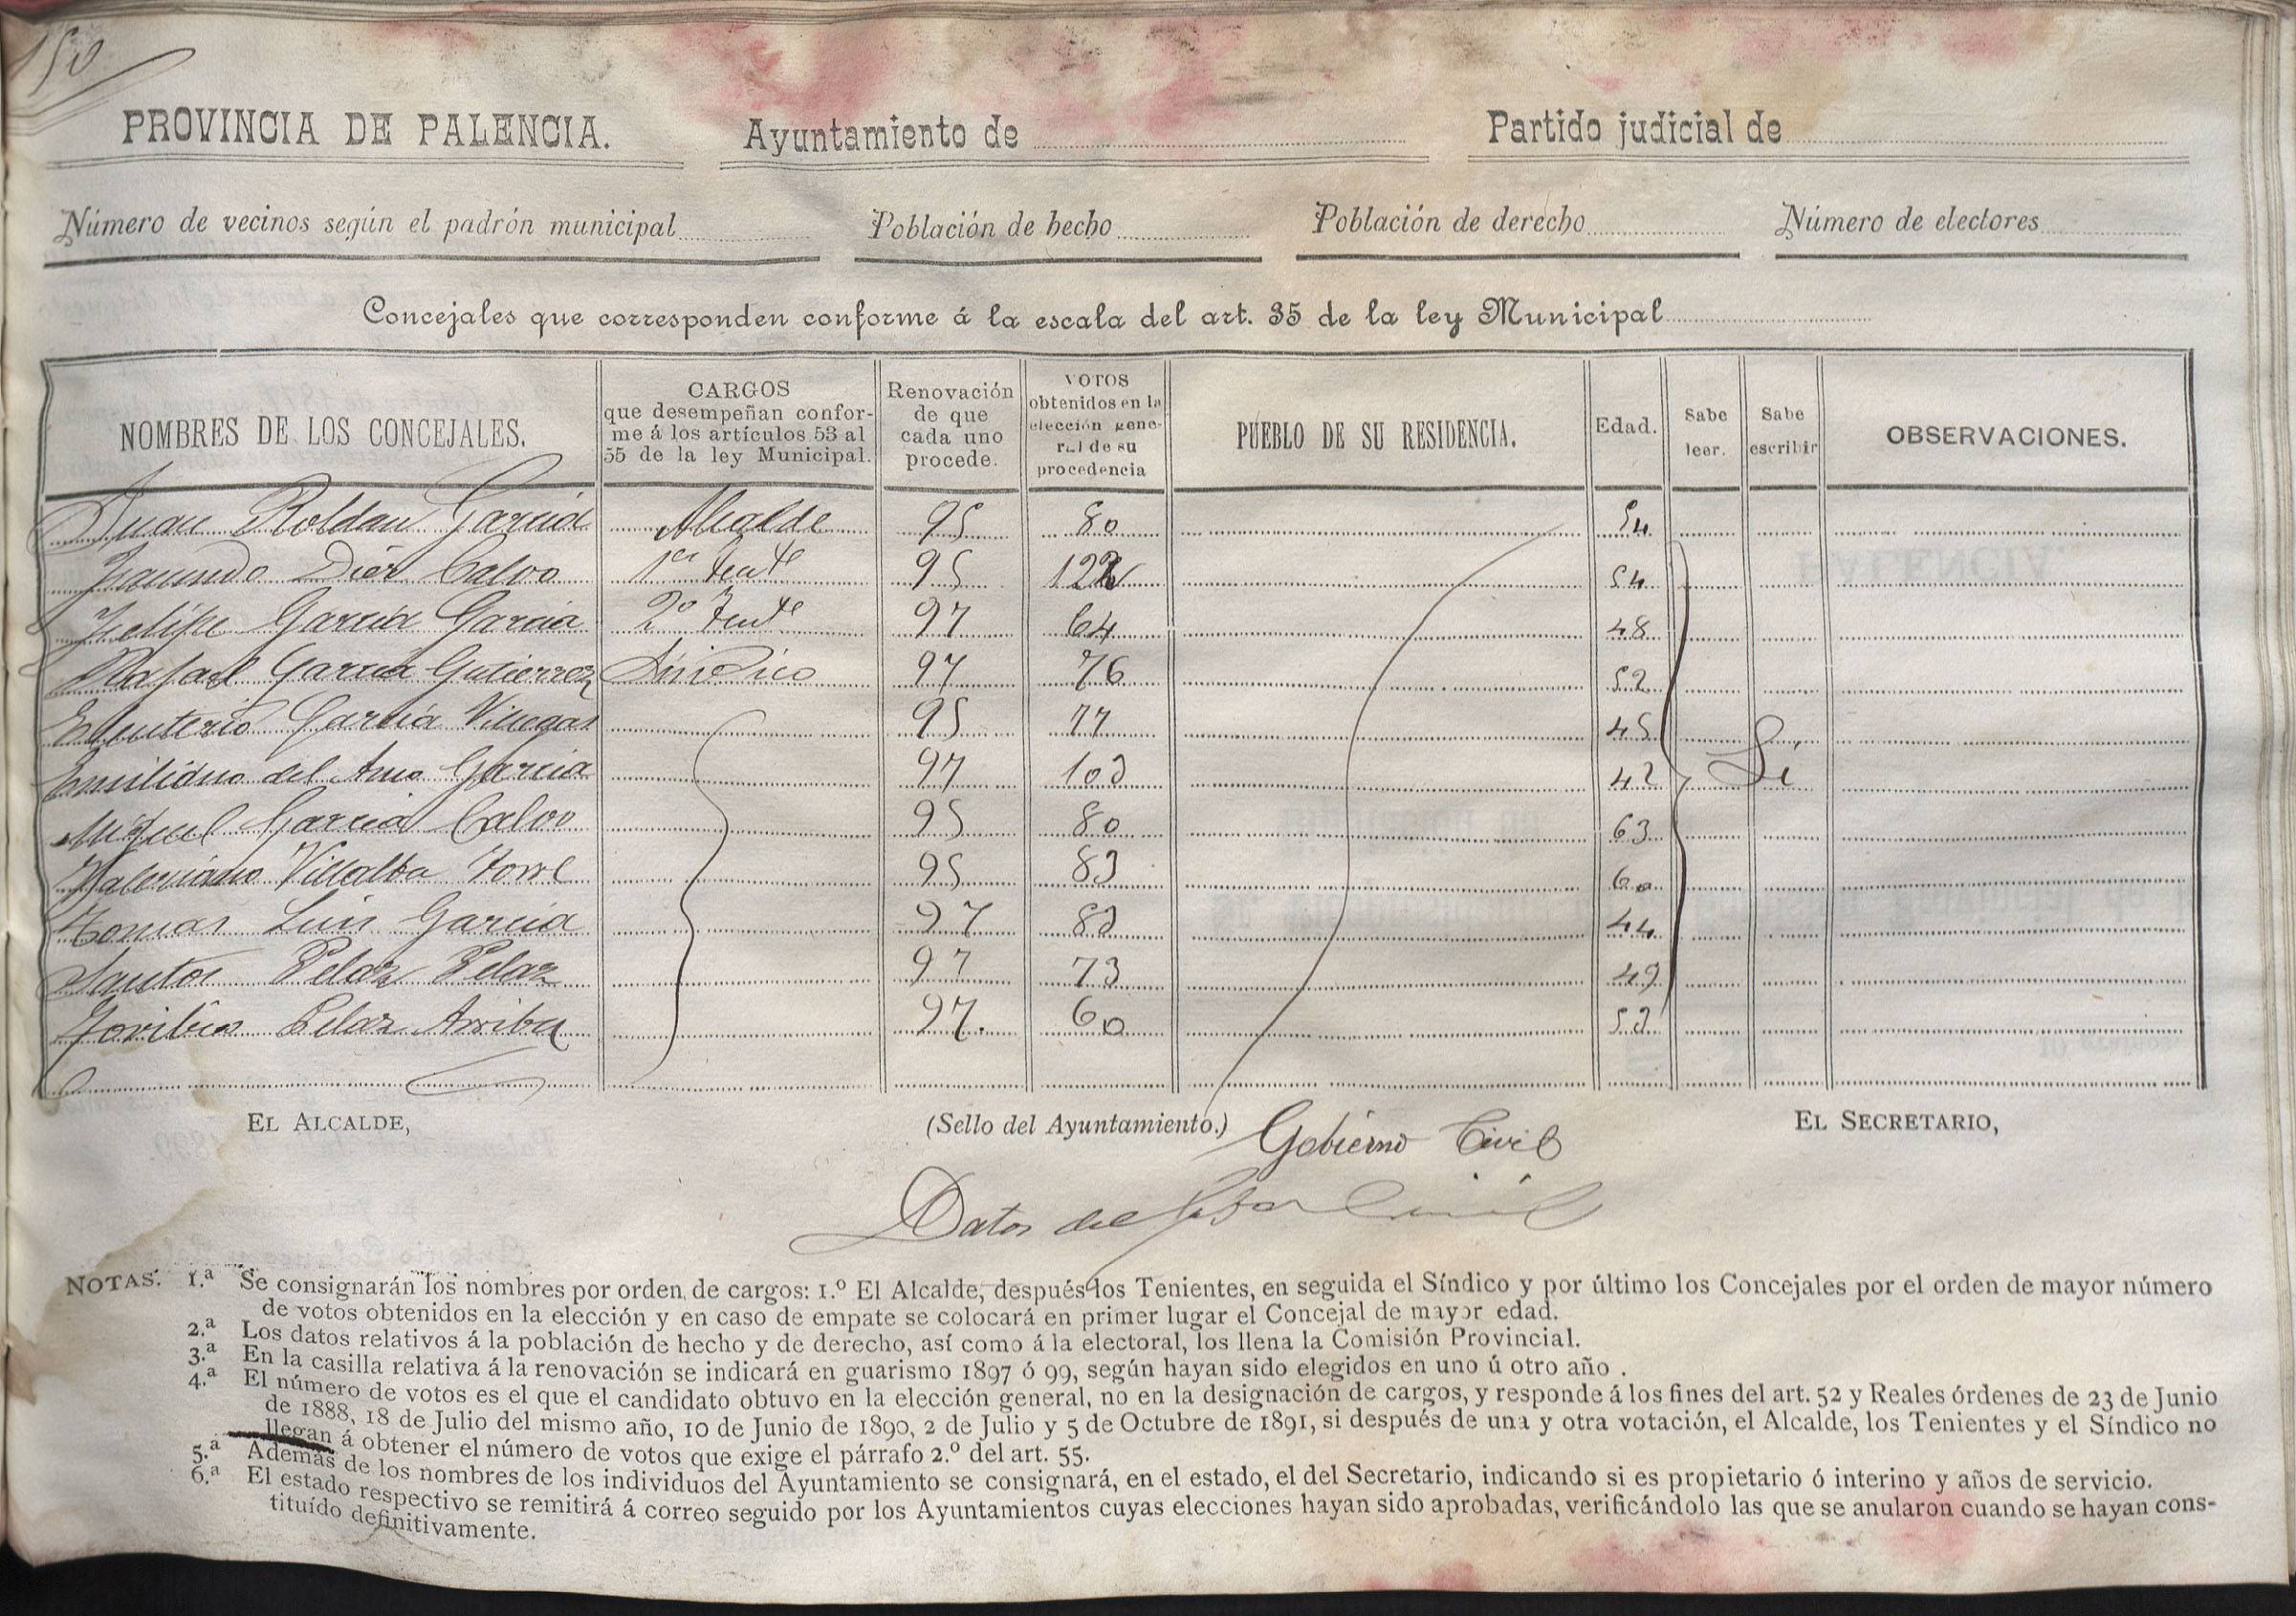 150
PROVINCIA DE PALENCIA. Ayuntamiento de Partido judicial de
Número de vecinos según el padrón municipal Población de hecho Población de derecho Número de electores
Concejales que corresponden conforme á la escala del art. 35 de la ley Municipal
NOMBRES DE LOS CONCEJALES. CARGOS que desempeñan conforme á los artículos 53 al 55 de la ley Municipal. Renovación de que cada uno procede. VOTOS obtenidos en la elección general de su procedencia PUEBLO DE SU RESIDENCIA. Edad. Sabe leer. Sabe escribir OBSERVACIONES.
Juan Roldan García Alcalde 95 80 54
Facundo Diez Calvo 1er Tente 95 122 54
Felipe García García 2º Tente 97 64 48
Rafael García Gutierrez Síndico 97 76 52
Eleuterio García Villegas 95 77 45
Emiliano del Amo García 97 102 42 Sí
Miguel García Calvo 95 80 63
Valeriano Villalba Torre 95 83 60
Tomas Luis García 97 82 44
Santos Pelaz Pelaz 97 73 49
Toribio Pelaz Arriba 97. 60 52
EL ALCALDE, (Sello del Ayuntamiento.) EL SECRETARIO,
Gobierno Civil
Datos del Gobor Civil
NOTAS. 1.ª Se consignarán los nombres por orden de cargos: 1.º El Alcalde, después los Tenientes, en seguida el Síndico y por último los Concejales por el orden de mayor número
de votos obtenidos en la elección y en caso de empate se colocará en primer lugar el Concejal de mayor edad.
2.ª Los datos relativos á la población de hecho y de derecho, así como á la electoral, los llena la Comisión Provincial.
3.ª En la casilla relativa á la renovación se indicará en guarismo 1897 ó 99, según hayan sido elegidos en uno ú otro año .
4.ª El número de votos es el que el candidato obtuvo en la elección general, no en la designación de cargos, y responde á los fines del art. 52 y Reales órdenes de 23 de Junio
de 1888, 18 de Julio del mismo año, 10 de Junio de 1890, 2 de Julio y 5 de Octubre de 1891, si después de una y otra votación, el Alcalde, los Tenientes y el Síndico no
llegan á obtener el número de votos que exige el párrafo 2.º del art. 55.
5.ª Además de los nombres de los individuos del Ayuntamiento se consignará, en el estado, el del Secretario, indicando si es propietario ó interino y años de servicio.
6.ª El estado respectivo se remitirá á correo seguido por los Ayuntamientos cuyas elecciones hayan sido aprobadas, verificándolo las que se anularon cuando se hayan cons-
tituído definitivamente.